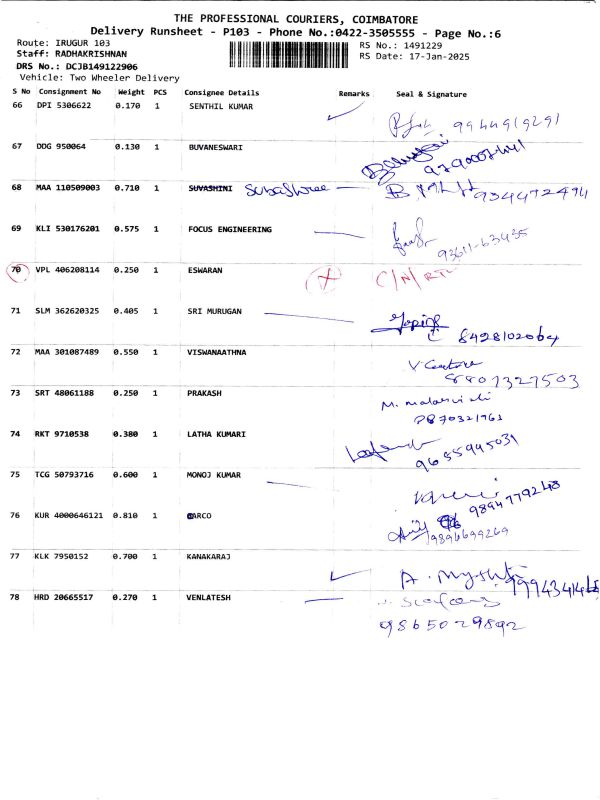 THE PROFESSIONAL COURIERS, COIMBATORE
Delivery Runsheet - P103 - Phone No.:0422-3505555 - Page No.:6
Route: IRUGUR 103
RS No.: 1491229
Staff: RADHAKRISHNAN
RS Date: 17-Jan-2025
DRS No.: DCJB149122906
Vehicle: Two Wheeler Delivery
S No Consignment No Weight PCS Consignee Details Remarks Seal & Signature
66 DPI 5306622 0.170 1 SENTHIL KUMAR
9944919291
67 DDG 950064 0.130 1 BUVANESWARI
68 MAA 110509003 0.710 1 SUVASHINI Subashree
934472494
69 KLI 530176201 0.575 1 FOCUS ENGINEERING
93611-63435
70 VPL 406208114 0.250 1 ESWARAN C/N/RTN
71 SLM 362620325 0.405 1 SRI MURUGAN
8428102064
72 MAA 301087489 0.550 1 VISWANAATHNA
8807327503
73 SRT 48061188 0.250 1 PRAKASH
74 RKT 9710538 0.380 1 LATHA KUMARI
9655945031
75 TCG 50793716 0.600 1 MONOJ KUMAR
9894779248
76 KUR 4000646121 0.810 1 BARCO
9894699269
77 KLK 7950152 0.700 1 KANAKARAJ
78 HRD 20665517 0.270 1 VENLATESH
9865029892